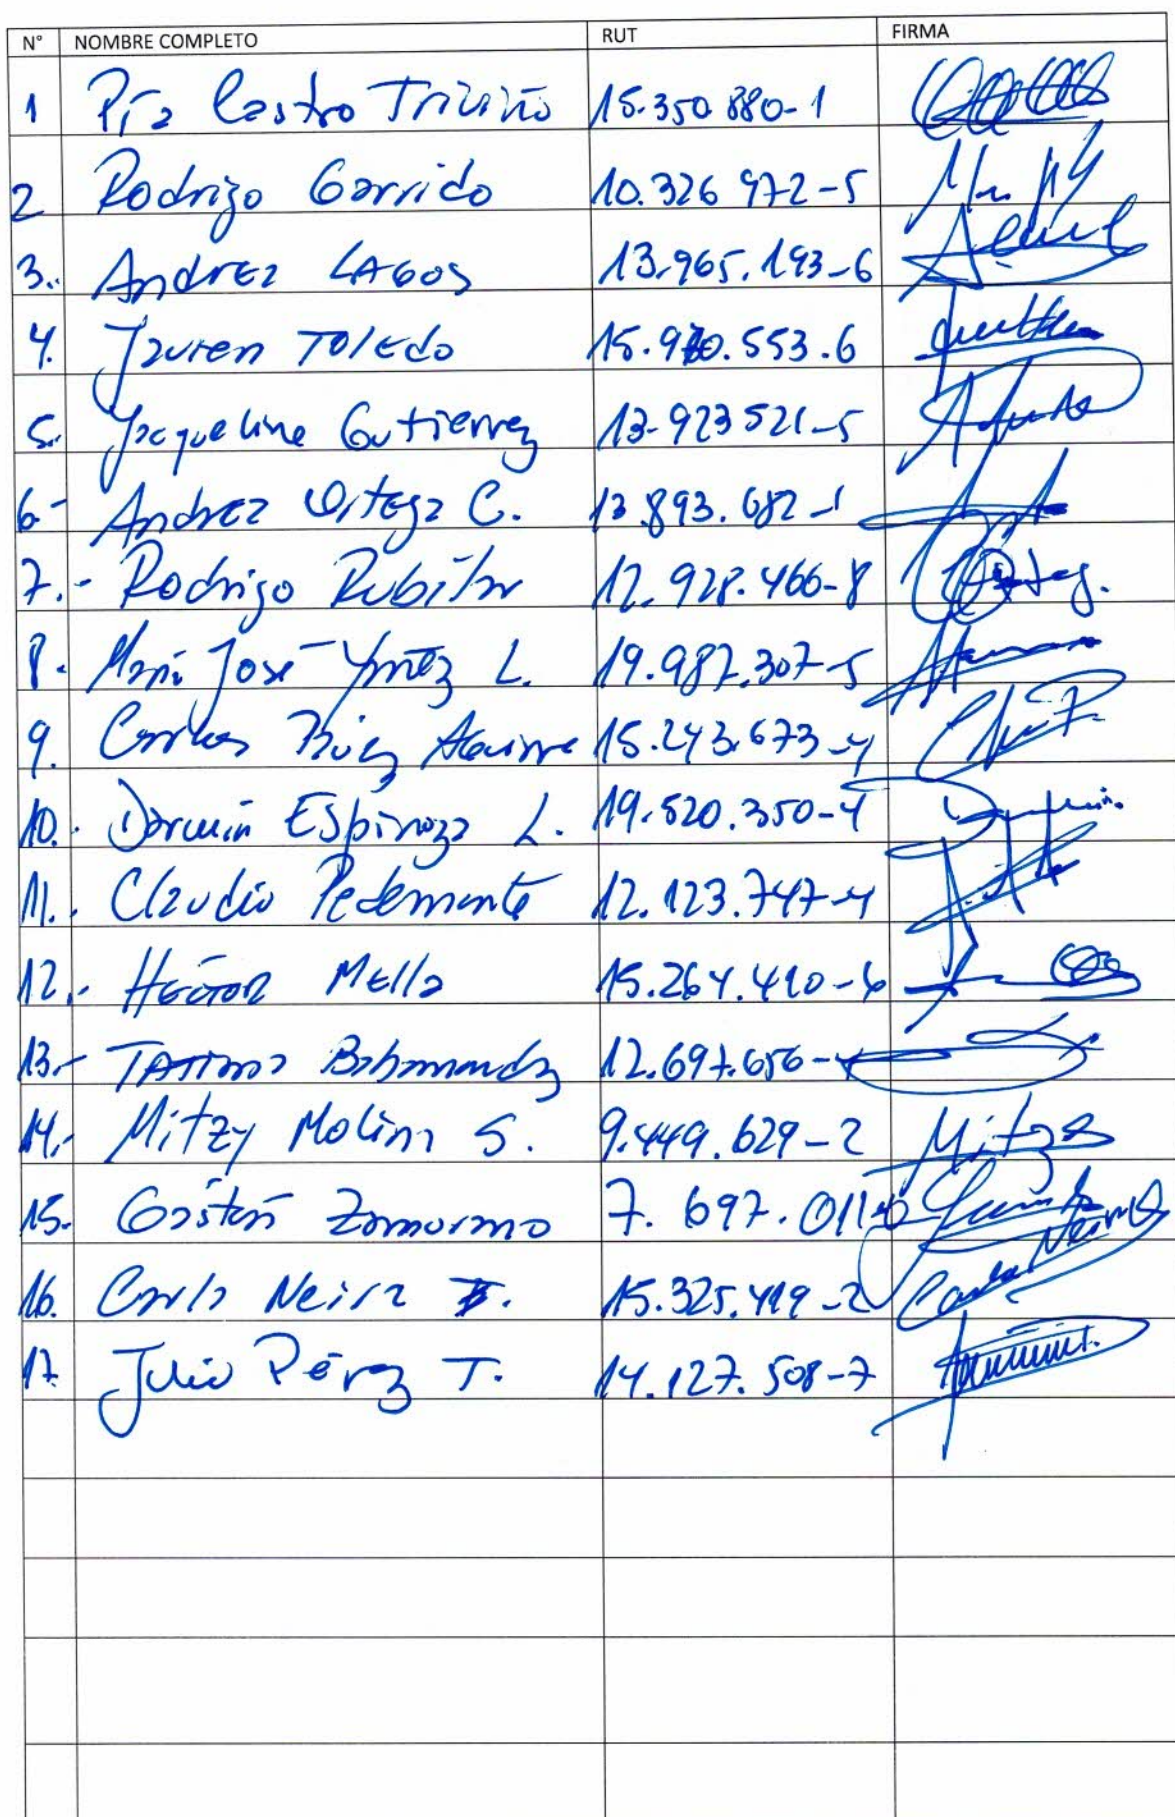 N° NOMBRE COMPLETO RUT FIRMA
1 Pía Castro Triviño 15.350.880-1
2 Rodrigo Garrido 10.326 972-5
3.- Andrez LAGOS 13.965.193-6
4. Jauren TOlEdo 15.970.553.6
5.- Jacqueline Gutierrez 13-923521-5
6.- Andrez Ortega C. 13.893.682-1
7.- Rodrigo Rubilar 12.928.466-8
8.- María José Yañez L. 19.987.307-5
9. Carlos Ruiz Aguirre 15.243.673-4
10.- Darwin Espinoza L. 19.520.350-4
11.- Claudio Pedemonte 12.123.747-4
12.- Hector Mella 15.264.410-6
13.- Tatiana Bahamondez 12.697.656-
14.- Mitzy Molina S. 9.449.629-2 Mitza
15.- Gastón Zamorano 7.697.011-
16. Carla Neira 15.325.419-2 Carla Neira
17. Julio Pérez T. 14.127.508-7